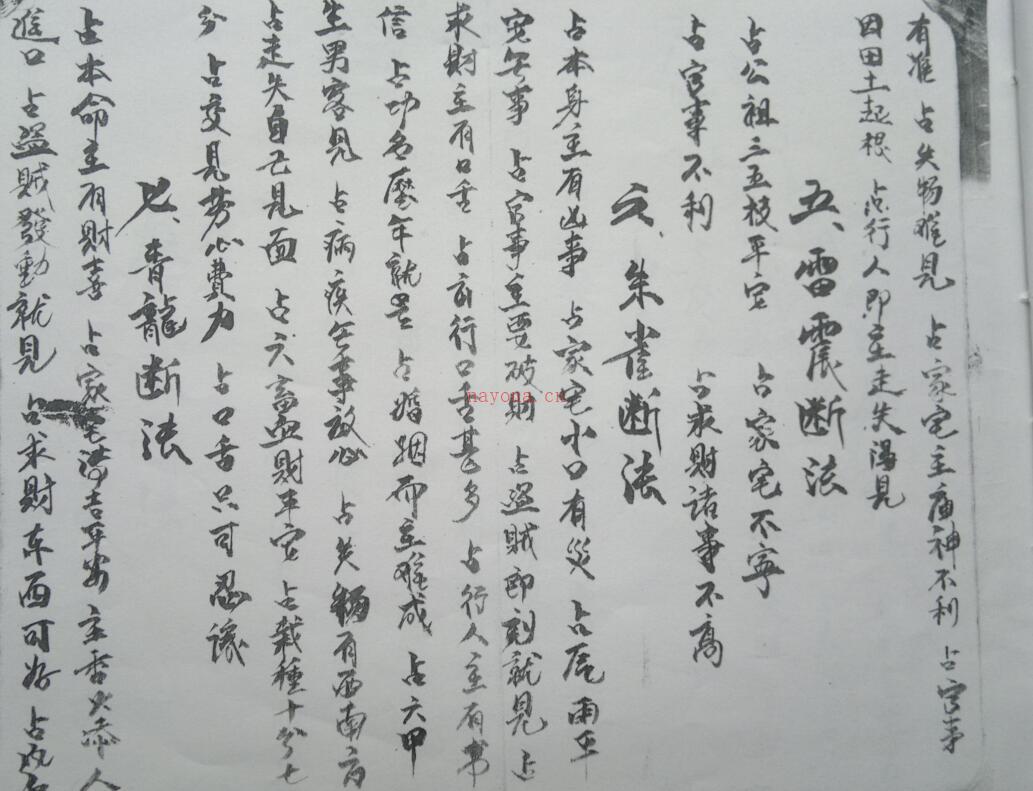 有准 占失物难見 占家宅主庙神不利 占官事
因田土起根 占行人即至走失得見
五、雷震断法
占公祖三五枝平安 占家宅不寧
占官事不利 占求財諸事不高
六、朱雀断法
占本身主有凶事 占家宅小口有災 占風雨
定無事 占官事主要破財 占盗賊即刻就見 占
求財主有口舌 占出行口舌甚多 占行人主有书
信 占功名歷年就是 占婚姻而主难成 占六甲
生男客見 占病疾無事放心 占失物有西南方
占走失自己見面 占六畜益財平安 占栽種十分七
分 占交見勞心費力 占口舌只可忍讓
七、青龍断法
占本命主有財喜 占家宅清吉平安 主香火添人
進口 占盗賊發動就見 占求財东西可好 占
nayona.cn